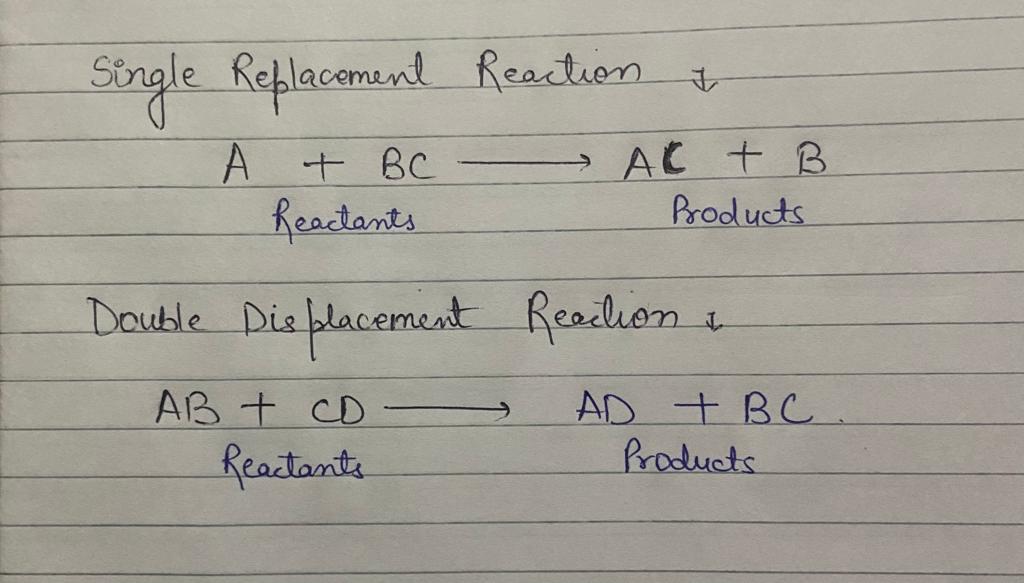 Single Replacement Reaction ↓
A + BC ⟶ AC + B
Reactants Products
Double Displacement Reaction ↓
AB + CD ⟶ AD + BC.
Reactants Products